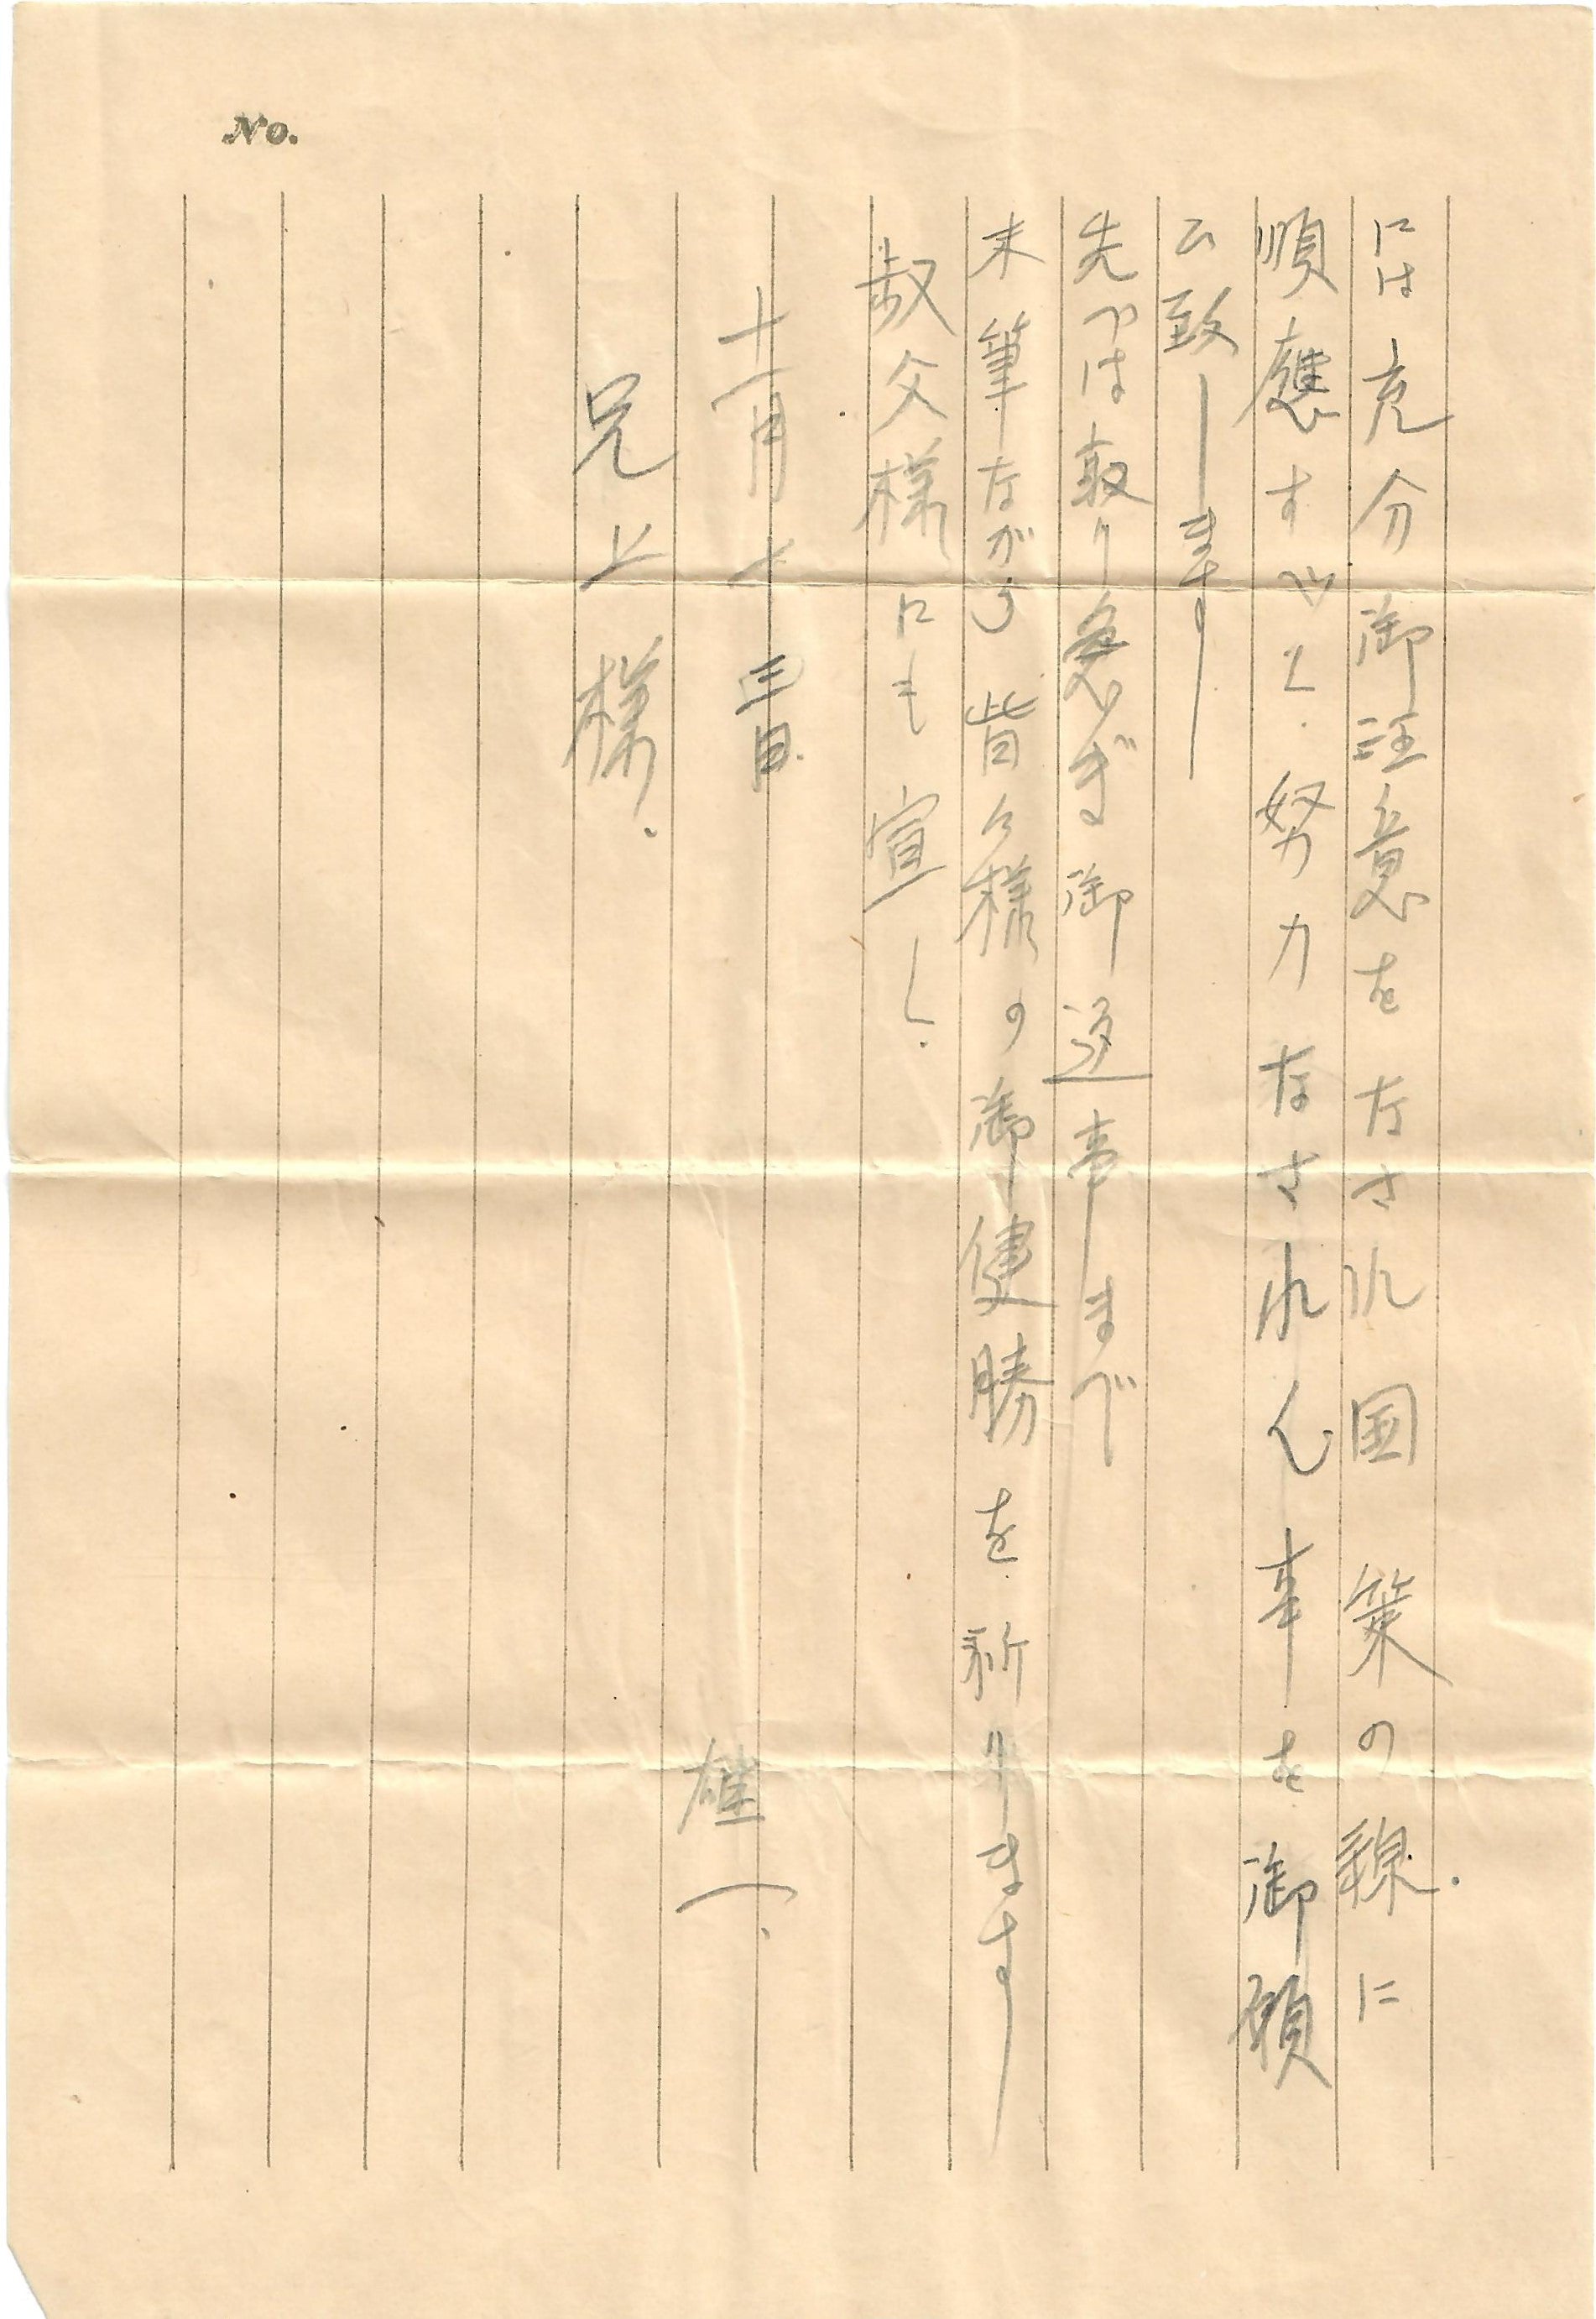 No.
には充分御注意をなされ国策の線に
順應すべく努力なされん事を御願
ひ致します
先づは取り急ぎ御返事まで
末筆ながら皆々様の御健勝を祈ります
叔父様にも宣しく
十一月十三日
雄一
兄上様